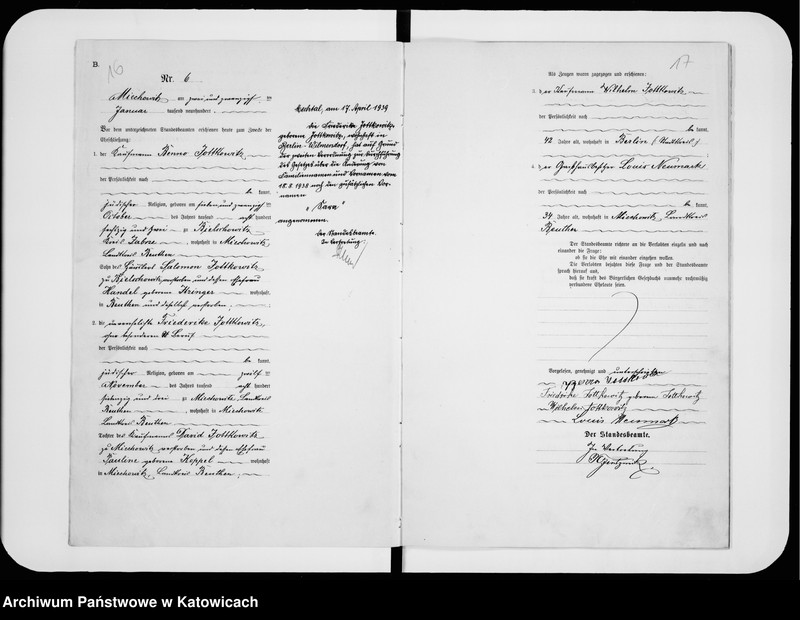 B.
16
Nr. 6
Miechowitz am zwei und zwanzigsten
Januar tausend neunhundert
Vor dem unterzeichneten Standesbeamten erschienen heute zum Zwecke der
Eheschließung:
1. der Kaufmann Benno Jottkowitz
der Persönlichkeit nach
be kannt,
jüdischer Religion, geboren am
Oktober des Jahres tausend acht hundert
sechzig und zwei zu Bielschowitz
Kreis Zabrze, wohnhaft in Miechowitz
Landkreis Beuthen
Sohn des Salomon Jottkowitz
zu Bielschowitz verstorben und dessen Ehefrau
Handel geborene wohnhaft
in Beuthen und daselbst verstorben
2. die unverehelichte Friedericke Jottkowitz,
ohne besonderen Beruf
der Persönlichkeit nach
be kannt,
jüdischer Religion, geboren am
November des Jahres tausend acht hundert
siebenzig und drei zu Miechowitz Landkreis
Beuthen, wohnhaft in Miechowitz
Landkreis Beuthen
Tochter des Kaufmanns David Jottkowitz
zu Miechowitz verstorben und dessen Ehefrau
Pauline geborene Koppel wohnhaft
in Miechowitz, Landkreis Beuthen
Mechtal, am 17. April 1939
Die Friederike Jottkowitz
geborene Jottkowitz, wohnhaft in
Berlin-Wilmersdorf, hat auf Grund
der zweiten Verordnung zur Durchführung
des Gesetzes über die Änderung von
Familiennamen und Vornamen vom
18.8.1938 noch den zusätzlichen Vor-
namen
"Sara"
angenommen.
Der Standesbeamte.
In Vertretung:
17
Als Zeugen waren zugezogen und erschienen:
3. der Kaufmann Wilhelm Jottkowitz
der Persönlichkeit nach
be kannt,
42 Jahre alt, wohnhaft in Berlin
4. der Gasthausbesitzer Louis Neumark
der Persönlichkeit nach
be kannt,
34 Jahre alt, wohnhaft in Miechowitz, Landkreis
Beuthen
Der Standesbeamte richtete an die Verlobten einzeln und nach
einander die Frage:
ob sie die Ehe mit einander eingehen wollen.
Die Verlobten bejahten diese Frage und der Standesbeamte
sprach hierauf aus,
daß sie kraft des Bürgerlichen Gesetzbuchs nunmehr rechtmäßig
verbundene Eheleute seien.
Vorgelesen, genehmigt und unterschrieben
Friedricke Jottkowitz geborene Jottkowitz
Wilhelm Jottkowitz
Louis Neumark
Der Standesbeamte.
In Vertretung
Archiwum Państwowe w Katowicach